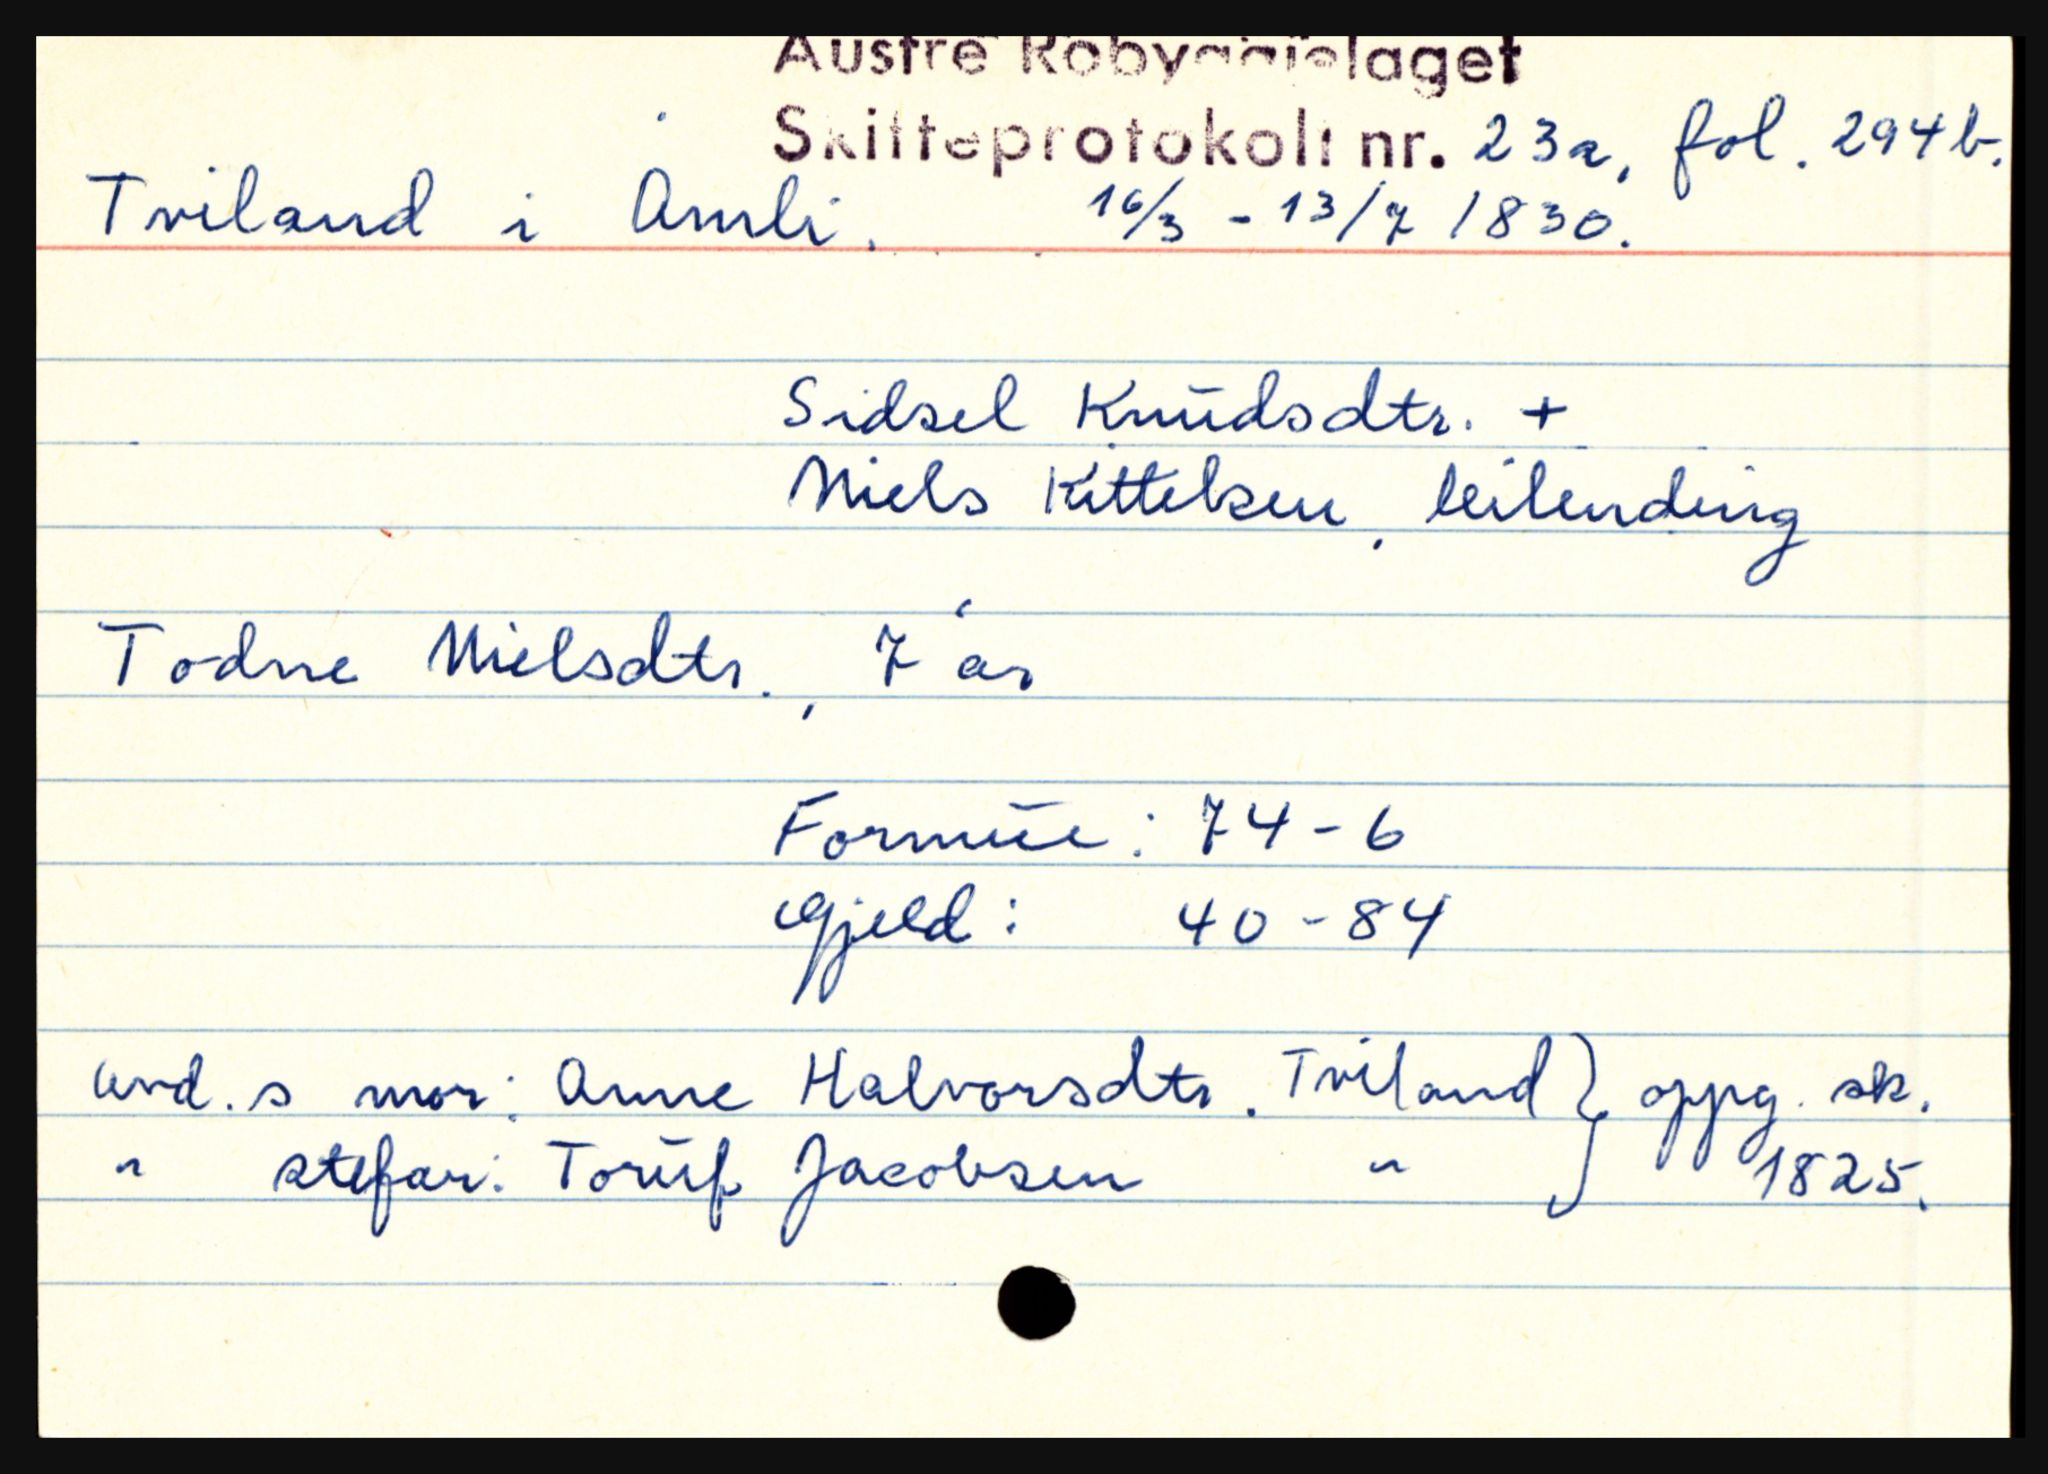 Austre Robyggjelaget
Skifteprotokoll nr. 23a, fol. 294b.
Tviland i Åmli. 16/3 - 13/7 1830.
Sidsel Knudsdtr. +
Niels Kittelsen, leilending
Todne Nielsdtr., 7 år
Formue: 74-6
Gjeld: 40-84
avd.s mor: Anne Halvorsdtr. Tviland } oppg. sk.
" stefar: Toruf Jacobsen " } 1825.